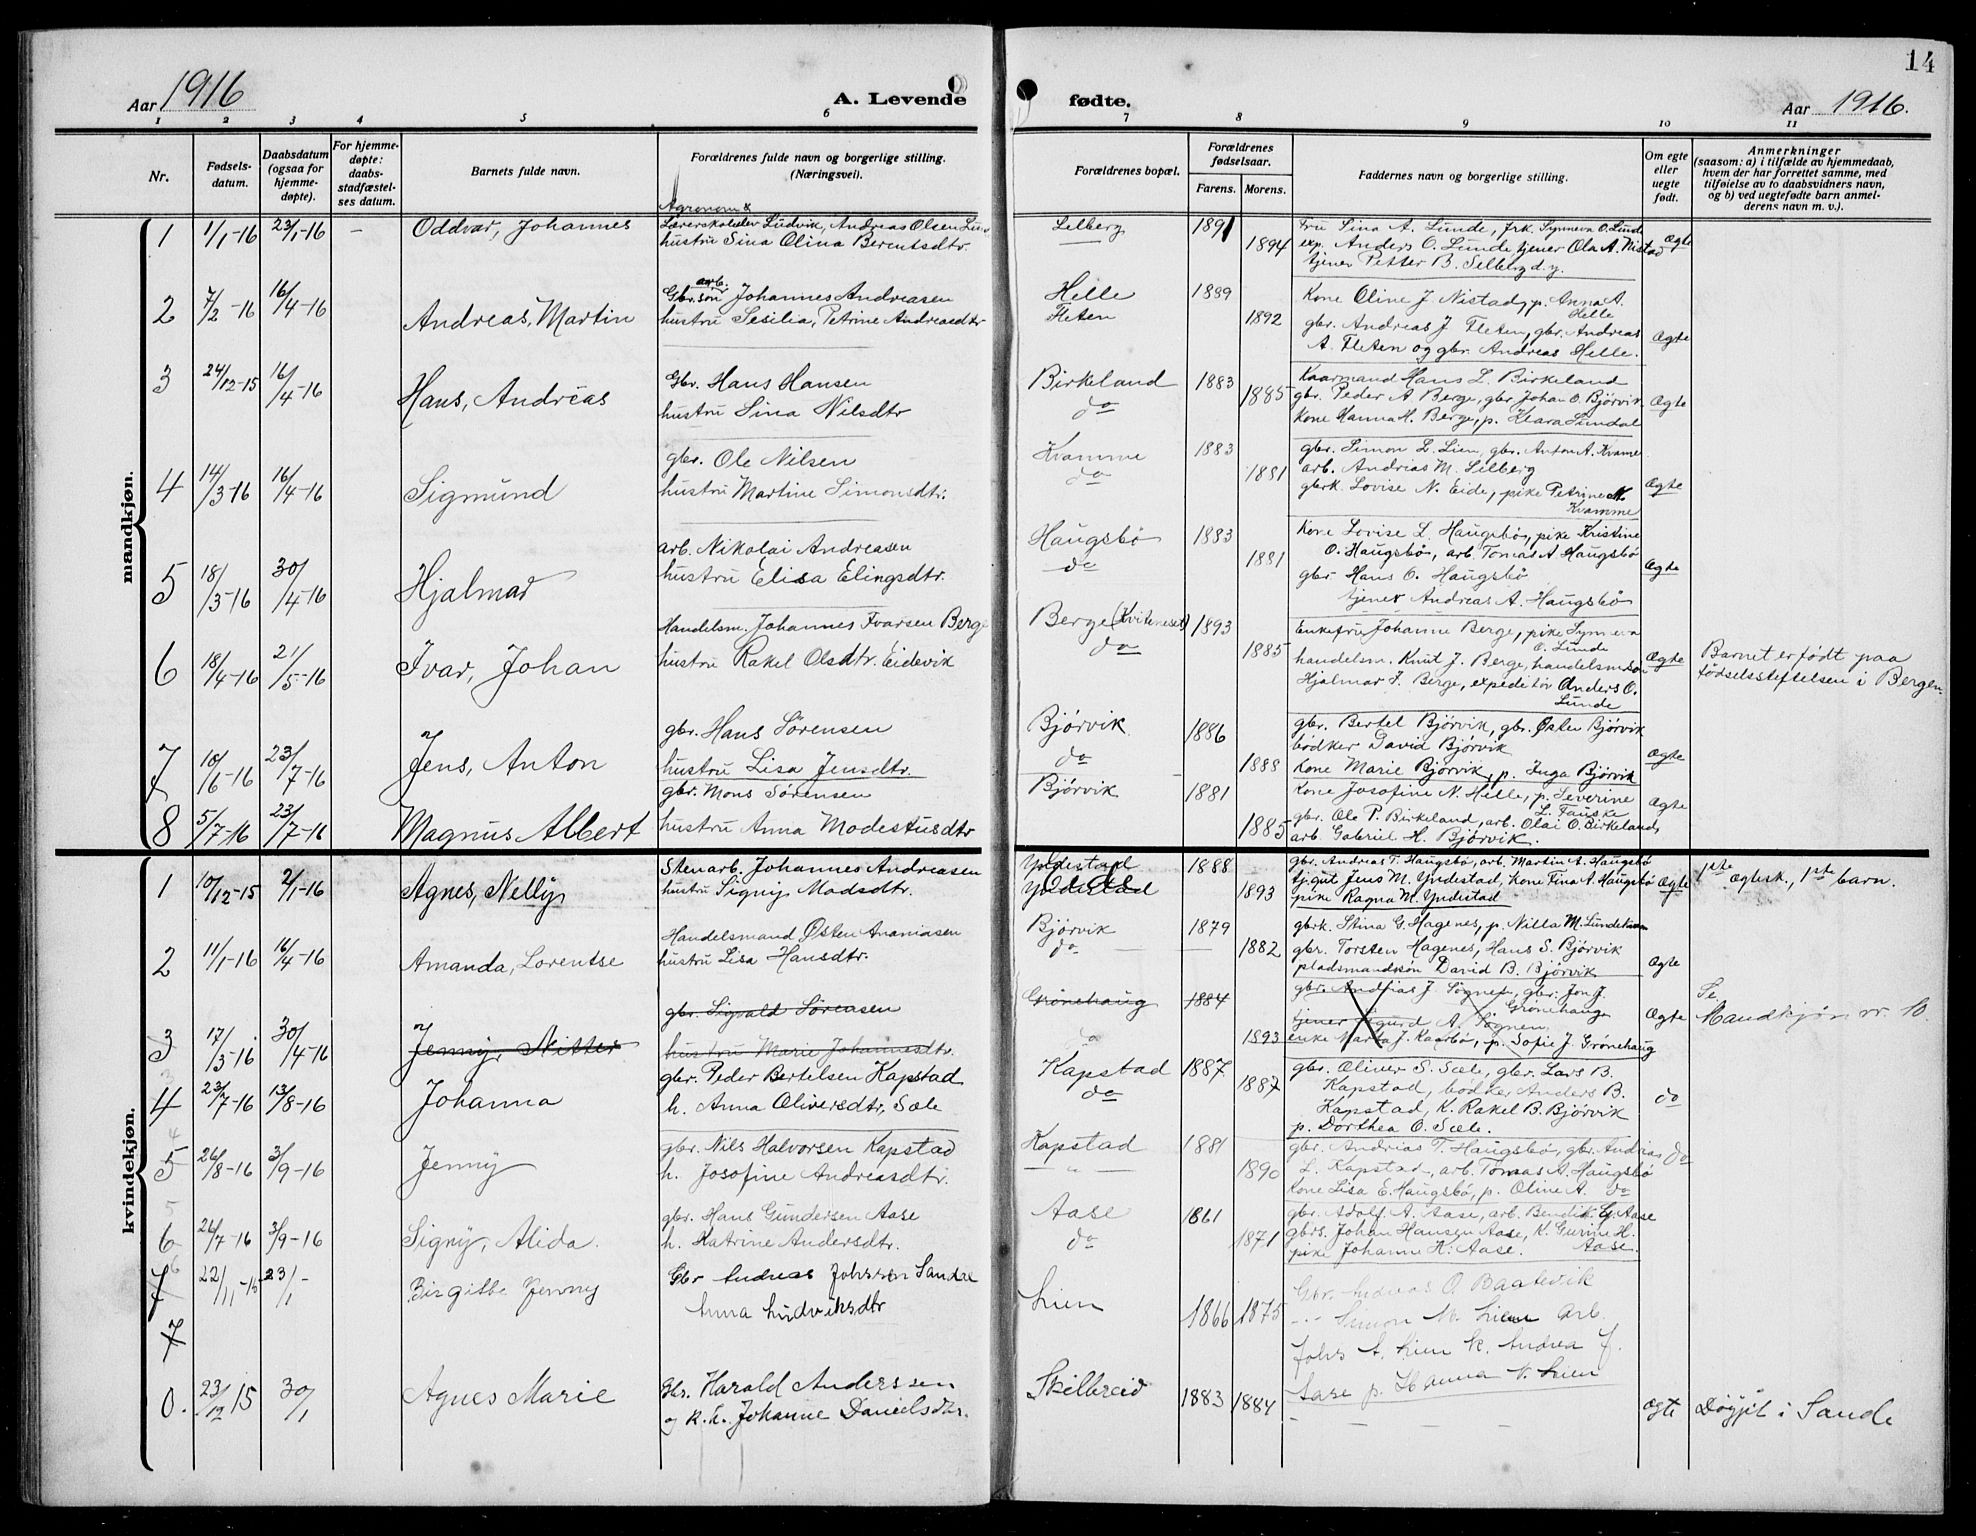 14
Aar 1916
A. Levende
fødte.
Aar 1916.
1 2 3 4 5 6 7 8 9 10 11
Nr.
Fødsels-
datum.
Daabsdatum
(ogsaa for
hjemme-
døpte).
For hjemme-
døpte:
daabs-
stadfæstel-
ses datum.
Barnets fulde navn.
Forældrenes fulde navn og borgerlige stilling.
(Næringsvei).
Forældrenes bopæl.
Forældrenes
fødselsaar.
Farens. Morens.
Faddernes navn og borgerlige stilling.
Om egte
eller
uegte
født.
Anmerkninger
(saasom: a) i tilfælde av hjemmedaab,
hvem der har forrettet samme, med
tilføielse av to daabsvidners navn,
og b) ved uegtefødte barn anmel-
derens navn m. v.).
mandkjøn.
Agronom &
1 1/1-16 23/1-16 - Oddvar, Johannes
Ludvik, Andreas Olsen
hustru Sina Olina Berentsdtr.
Selberg 1891 1894
Fru Sina A. Lunde, frk. Synneva O. Lunde
exp. Anders O. Lunde tjener Ola A. Nistad
tjener Petter B. Selberg d.y.
Ægte
2 7/2-16 16/4-16 Andreas, Martin
arb.
Gbr.søn Johannes Andreasen
hustru Sesilia, Petrine Andreasdtr
Helle
Fleten
1889 1892
Kone Oline J. Nistad, p. Anna A.
Helle
gbr. Andreas J. Fleten, gbr. Andreas
A. Fleten og gbr. Andreas Helle.
Ægte
3 24/12-15 16/4-16 Hans, Andreas
Gbr. Hans Hansen
hustru Sina Nilsdtr
Birkeland
do
1883 1885
Kaarmand Hans L. Birkeland
gbr. Peder A Berge, gbr. Johan O. Bjørvik
Kone Hanna H. Berge, p. Klara Sundal
Ægte
4 14/3-16 16/4-16 Sigmund
gbr. Ole Nilsen
hustru Martine Simonsdtr.
Kvamme
do
1883 1881
gbr. Simon L. Lien, gbr. Anton A. Kvamme
arb. Andrias M. Selberg
gbrk. Lovise N. Eide, pike Petrine M.
Kvamme
Ægte
5 18/3-16 30/4-16 Hjalmar
arb. Nikolai Andreasen
hustru Elisa Elingsdtr.
Haugsbø
do
1883 1881
Kone Lovise L. Haugsbø, pike Kristine
O. Haugsbø, arb. Tomas A Haugsbø
gbr. Hans O. Haugsbø
tjener Andreas A. Haugsbø
Ægte
6 18/4-16 21/5-16 Ivar, Johan
Handelsm. Johannes Ivarsen Berge
hustru Rakel Olsdtr. Eidevik
Berge (Kviteneset)
do
1893 1885
Enkefru Johanne Berge, pike Synneva
O. Lunde
handelsm. Knut J. Berge, handelsmson
Hjalmar J. Berge, expeditør Anders O.
Lunde
Ægte
Barnet er født paa
fødselsstiftelsen i Bergen.
7 10/6-16 23/7-16 Jens, Anton
gbr. Hans Sørensen
hustru Lisa Jensdtr.
Bjørvik
do
1886 1888
gbr. Bertel Bjørvik, gbr. Østen Bjørvik
bødker David Bjørvik
Kone Marie Bjørvik, p. Inga Bjørvik
Ægte
8 5/7-16 23/7-16 Magnus Albert
gbr. Mons Sørensen
hustru Anna Modestusdtr
Bjørvik
1881 1885
Kone Josofine N. Helle, p. Severine
L. Fauske
gbr. Ole P. Birkeland, arb. Olai O. Birkeland,
arb. Gabriel H. Bjørvik.
Ægte
kvindekjøn.
1 10/12-15 2/1-16 Agnes, Nelly
Stenarb. Johannes Andreasen
hustru Signy Madsdtr.
Yndestad
Yndestad
1888 1893
gbr. Andreas T. Haugsbø, arb. Martin A. Haugsbø
tj.gut Jens M. Yndestad, Kone Fina A. Haugsbø
pike Ragna M. Yndestad
Ægte
1ste ægtesk., 1ste barn.
2 11/1-16 16/4-16 Amanda, Lorentse
Handelsmand Østen Ananiasen
hustru Lisa Hansdtr.
Bjørvik
do
1879 1882
gbrk. Stina G. Hagenes, p. Nilla M.
gbr. Torsten Hagenes, Hans S. Bjørvik
pladsmandssøn David B. Bjørvik
Ægte
3 17/3-16 30/4-16 Jenny,
gbr. Sigvald Sørensen
hustru Marie Johannesdtr.
Grønehaug
do
1884 1893
gbr. Andrias J. Søgnen, gbr. Jon J.
Grønehaug
tjener Sigurd A. Søgnen
enke Marta J. Kaarbø, p. Sofie J. Grønehaug
Ægte
Se
Mandkjøn nr. 10
3
4 23/7-16 13/8-16 Johanna
gbr. Peder Bertelsen Kapstad
h. Anna Oliversdtr. Sæle
Kapstad
do
1887 1887
gbr. Oliver S. Sæle, gbr. Lars B.
Kapstad, bødker Anders B.
Kapstad, K. Rakel B. Bjørvik
p. Dorthea O. Sæle.
do
4
5 26/8-16 3/9-16 Jenny
gbr. Nils Halvorsen Kapstad
h. Josofine Andreasdtr.
Kapstad
"
1881 1890
gbr. Andrias T. Haugsbø, gbr. Andrias
L. Kapstad, arb. Tomas A. Haugsbø
Kone Lisa E. Haugsbø, p. Oline A. do
do
5
6 26/7-16 3/9-16 Signy, Alida.
gbr. Hans Gundersen Aase
h. Katrine Andersdtr.
Aase
do
1861 1871
gbr. Adolf A. Aase, arb. Bendik G. Aase
gbrs. Johan Hansen Aase, K. Gurine H.
Aase.
pike Johanne H. Aase.
6
7 22/11-15 23/1 Birgitte Jenny
Gbr Andreas Johssen Sandal
Anna Ludviksdtr
Lien
1866 1875
Gbr. Andreas O Baatevik
-"- Simon M. Lien Arb.
Johs A. Lien K. Andrea J.
Aase p. Hanna N. Lien
7
0. 23/12 15 30/1 Agnes Marie
Gbr. Harald Anderssen
og k. h. Johanne Danielsdtr.
Skilbreid
1883 1884
- - -
Ægte
Døypt i Sande